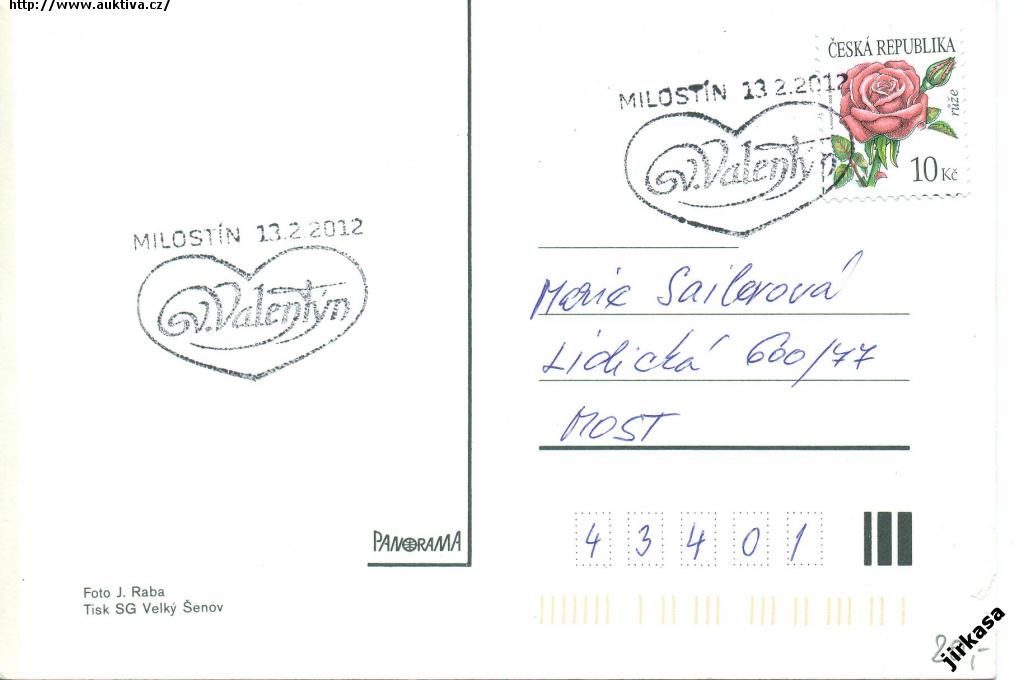 http://www.auktiva.cz/
ČESKÁ REPUBLIKA
růže
10 Kč
MILOSTÍN 13.2.2012
Sv. Valentýn
MILOSTÍN 13.2.2012
Sv. Valentýn
Marie Sailerová
Lidická 600/77
MOST
PANORAMA
43401
Foto J. Raba
Tisk SG Velký Šenov
20,-
jirkasa